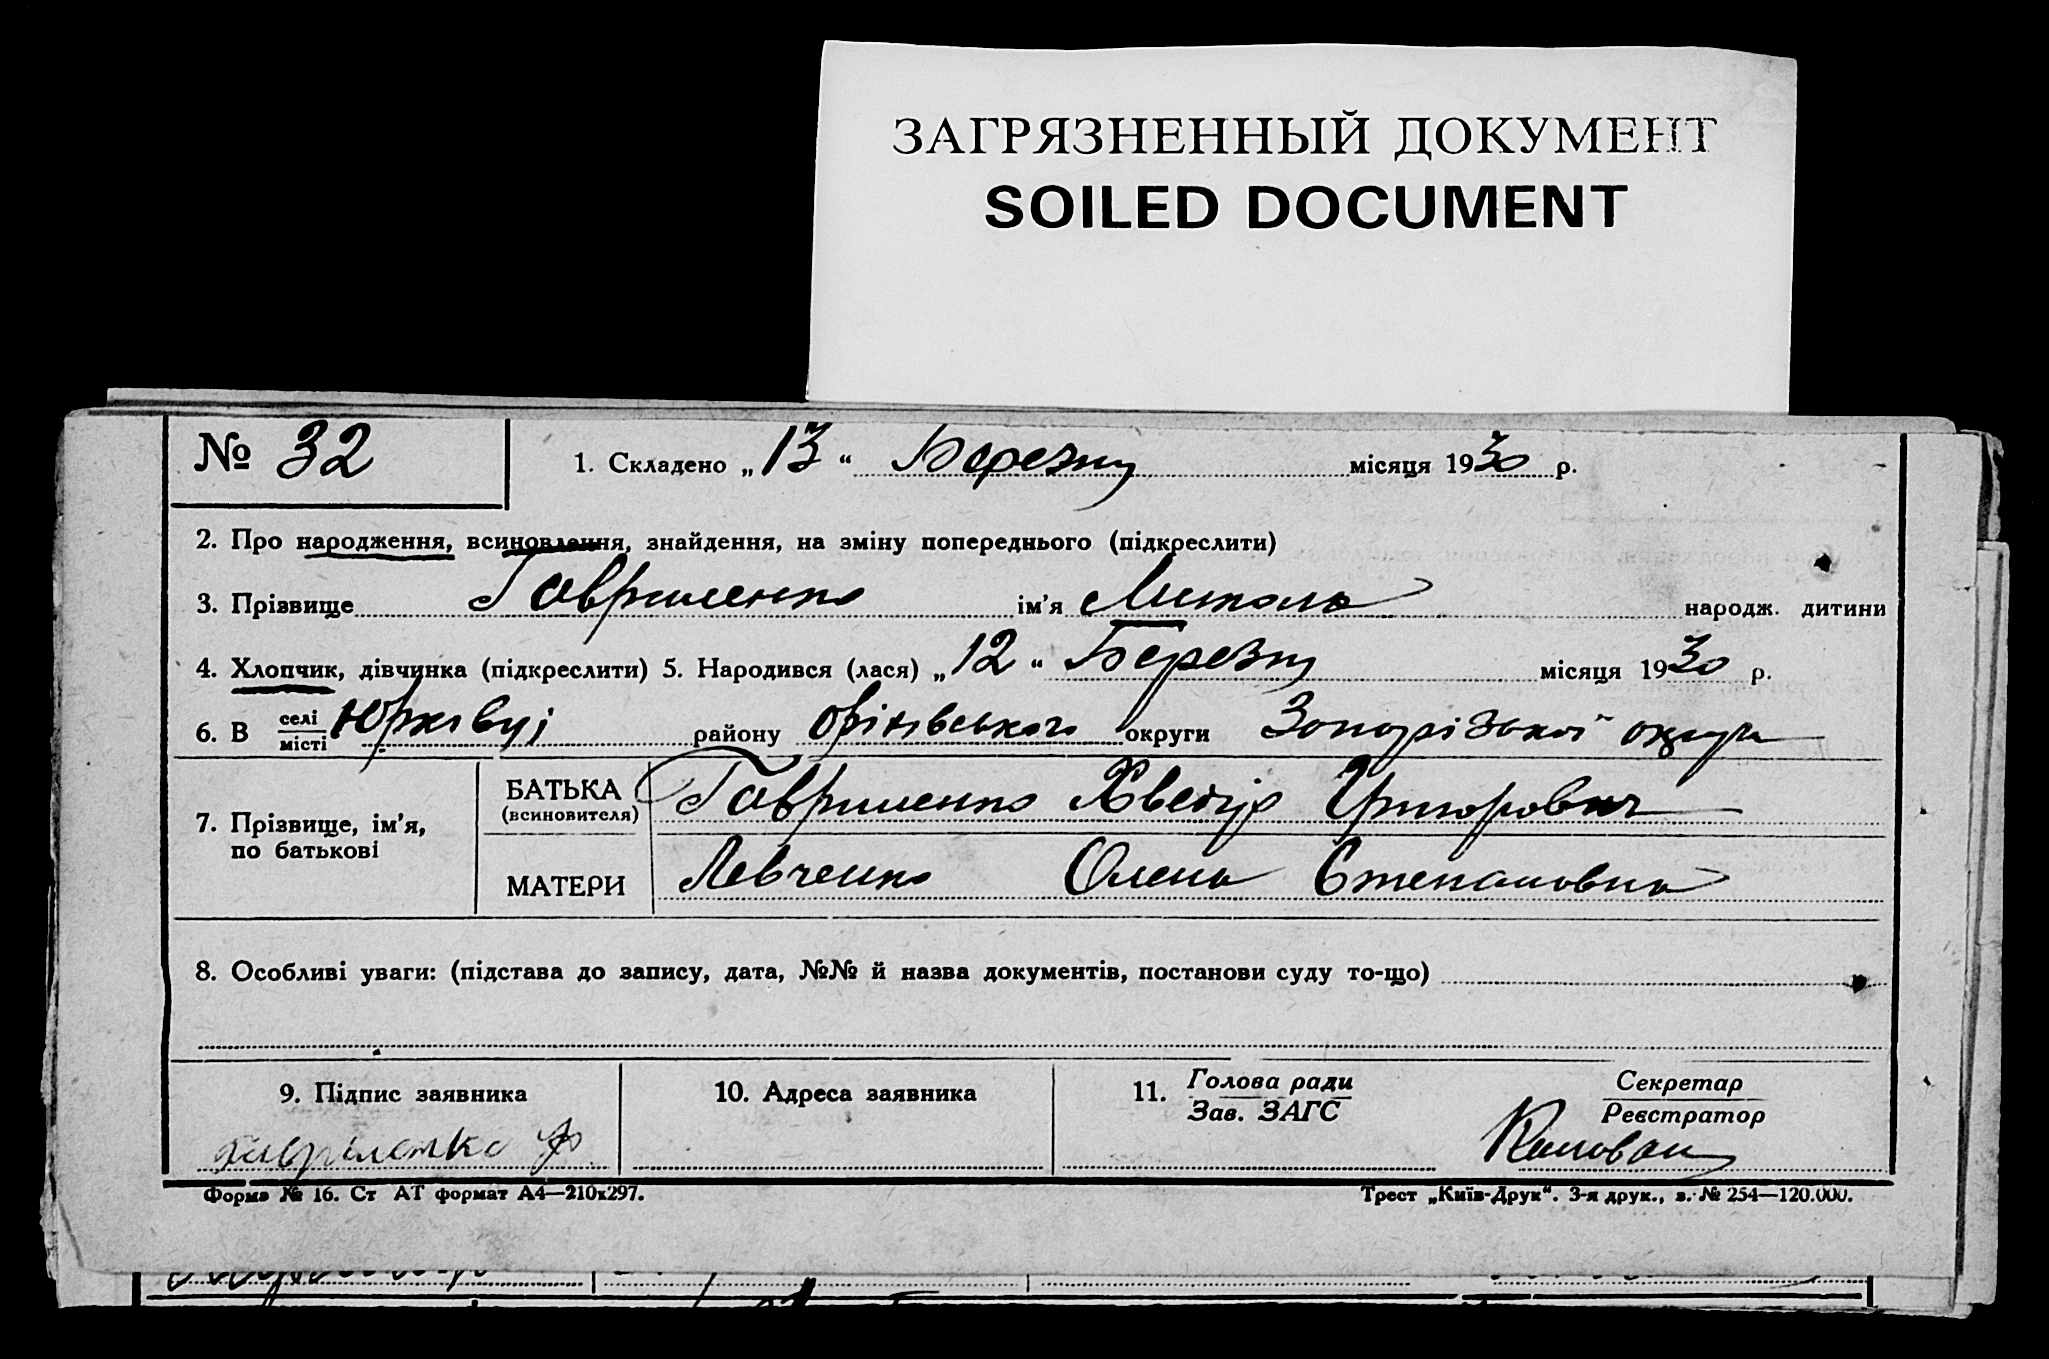 ЗАГРЯЗНЕННЫЙ ДОКУМЕНТ
SOILED DOCUMENT
№ 32
1. Складено „13“ Березня місяця 1930 р.
2. Про народження, всиновлення, знайдення, на зміну попереднього (підкреслити)
3. Прізвище Гавриленко ім'я Микола народж. дитини
4. Хлопчик, дівчинка (підкреслити) 5. Народився (лася) „12“ Березня місяця 1930 р.
6. В селі місті Юрківці району Оріхівського округи Запорізької округи
7. Прізвище, ім'я, по батькові
БАТЬКА (всиновителя) Гавриленко Хведір Григорович
МАТЕРИ Левченко Олена Степановна
8. Особливі уваги: (підстава до запису, дата, №№ й назва документів, постанови суду то-що)
9. Підпис заявника
10. Адреса заявника
11. Голова ради Зав. ЗАГС
Секретар Реєстратор
гавриленко Ф
Форма № 16. Ст АТ формат А4—210х297.
Трест „Київ-Друк“. 3-я друк., з. № 254—120.000.